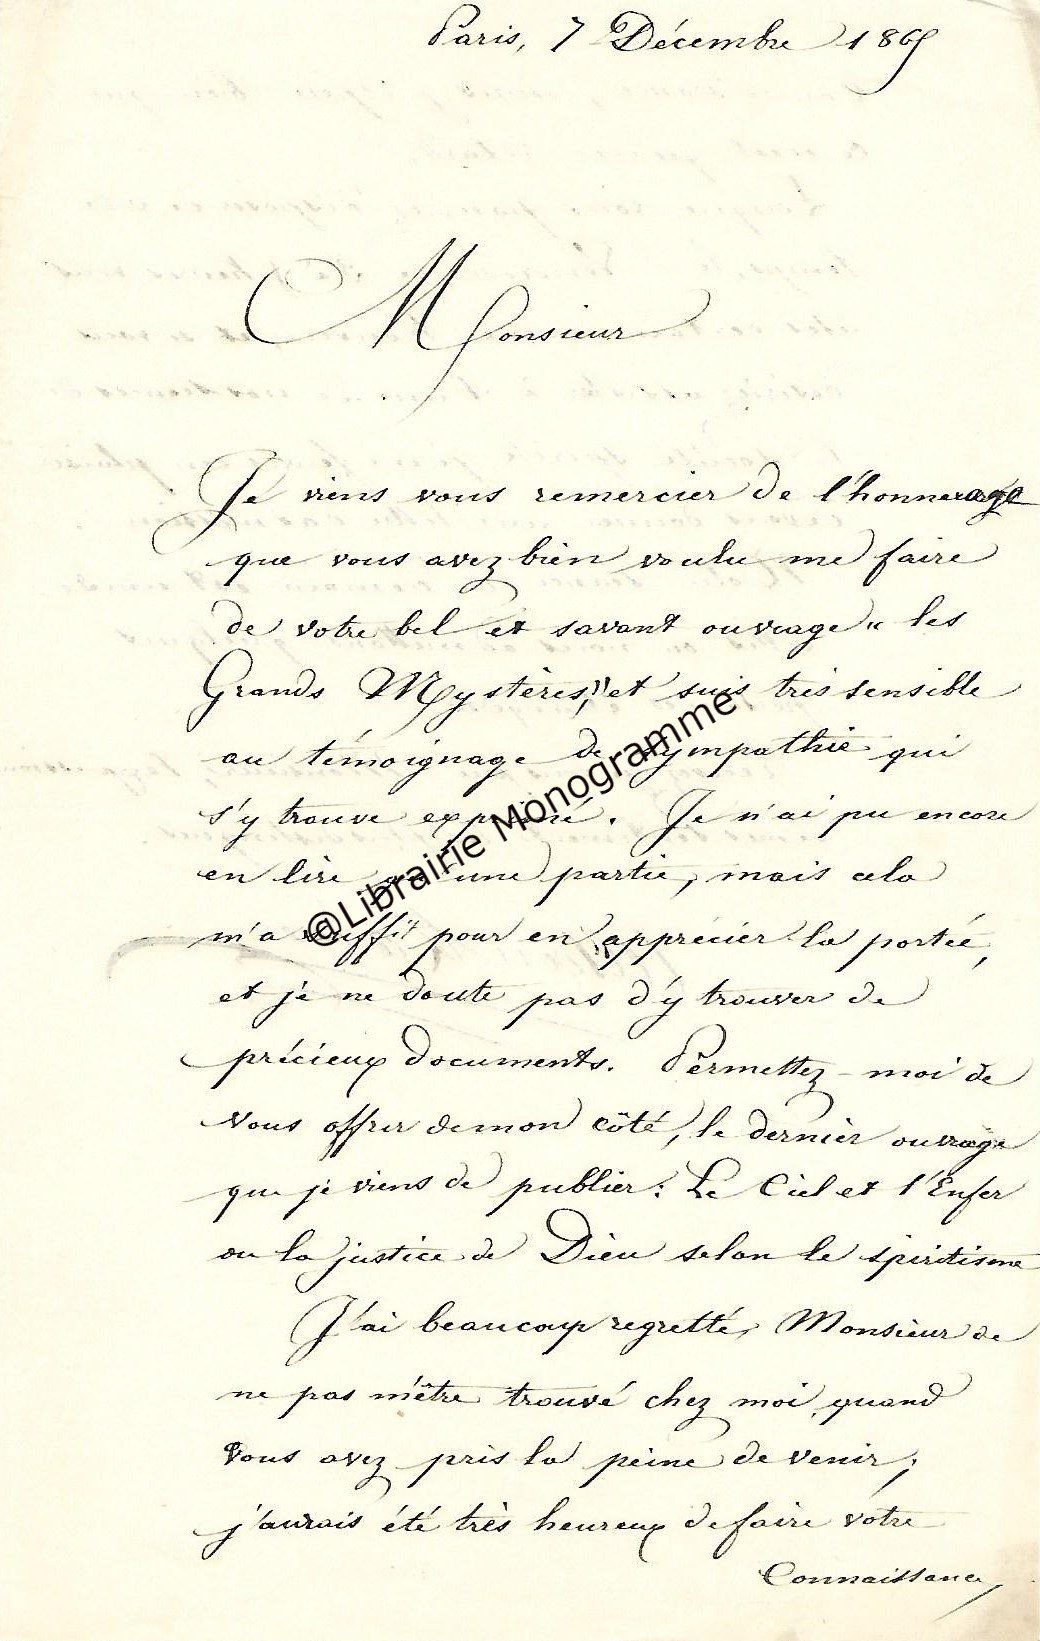 Paris, 7 Décembre 1865
Monsieur
Je viens vous remercier de l'honneur
que vous avez bien voulu me faire
de votre bel et savant ouvrage " les
Grands Mystères," et suis très sensible
au témoignage de sympathie qui
s'y trouve exprimé. Je n'ai pu encore
en lire qu'une partie, mais cela
m'a suffit pour en apprécier la portée,
et je ne doute pas d'y trouver de
précieux documents. Permettez-moi de
vous offrir de mon côté, le dernier ouvrage
que je viens de publier : Le Ciel et l'Enfer
ou la justice de Dieu selon le spiritisme
J'ai beaucoup regretté, Monsieur de
ne pas m'être trouvé chez moi, quand
vous avez pris la peine de venir ;
j'aurais été très heureux de faire votre
Connaissance,
@Librairie Monogramme